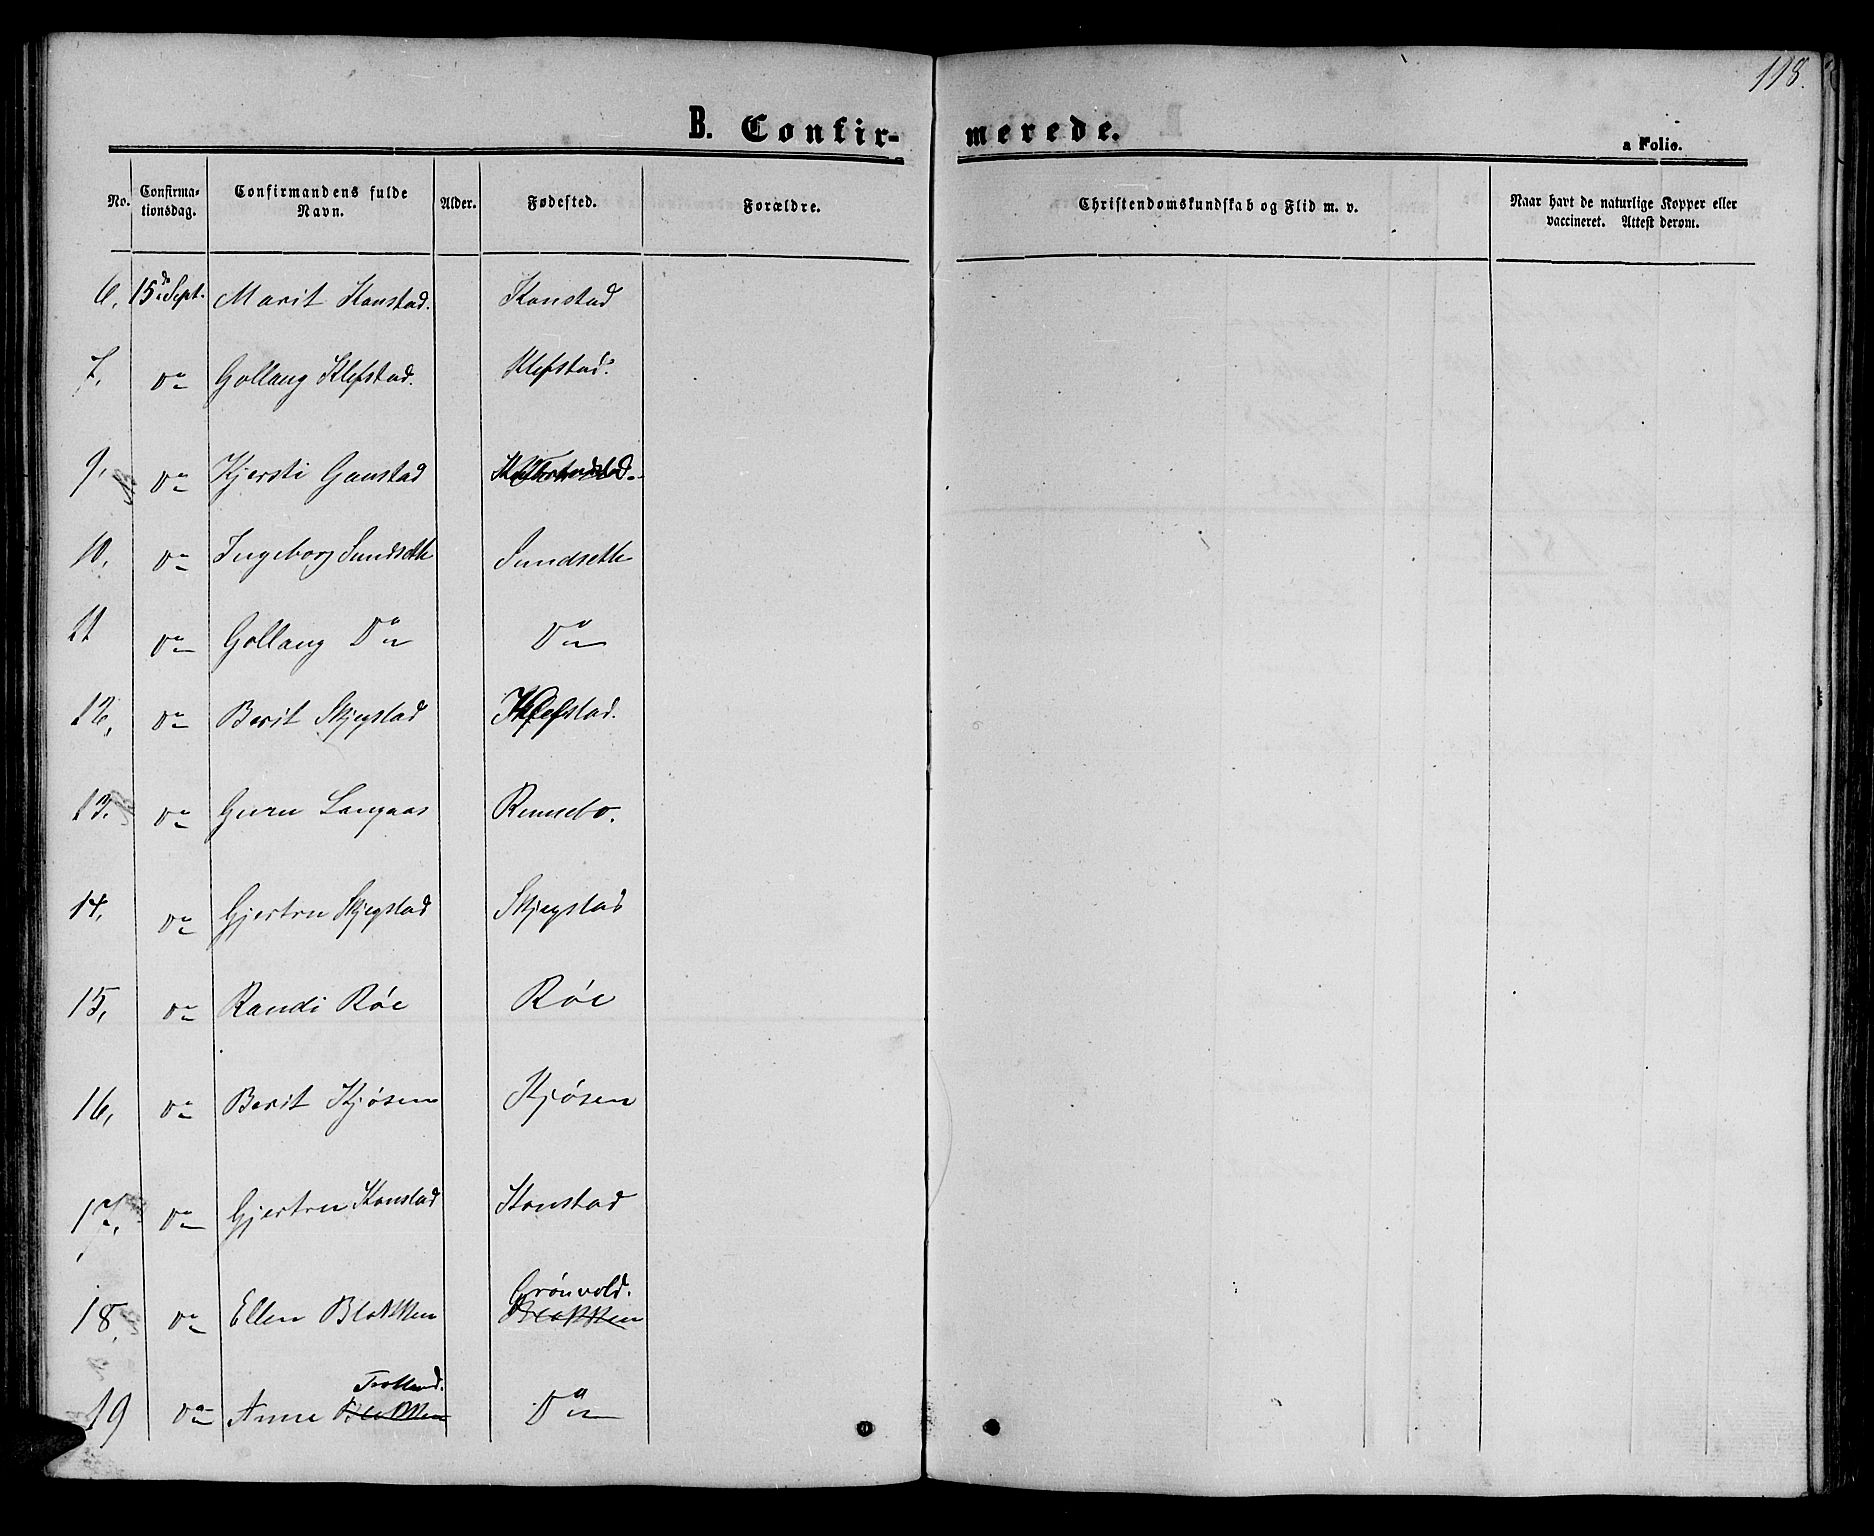 118.
B. Confir- merede.
a Folio.
No. Confirma- tionsdag. Confirmandens fulde Navn. Alder. Fødested. Forældre. Christendomskundskab og Flid m. v. Naar havt de naturlige Kopper eller vaccineret. Attest derom.
6, 15de Sept. Marit Konstad. Konstad
7, Do Gollaug Klefstad. Klefstad.
9, Do Kjersti Gaustad
10, Do Ingeborg Sundseth Sundseth
11 Do Gollaug Do Do
12, Do Berit Skjegstad Klefstad.
13, Do Guru Langaas Rennebo.
14, Do Gjertru Skjegstad Skjegstad
15, Do Randi Röe Röe
16, Do Berit Kjösen Kjösen
17, Do Gjertru Konstad Konstad
Grönvold.
18, Do Ellen Blokken Blokken
19 Do Anne Blokken Do